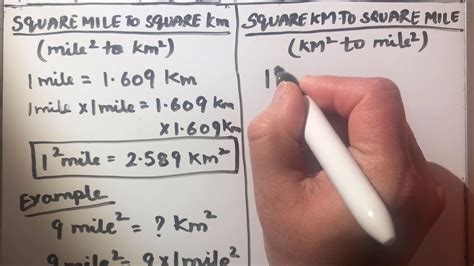 SQUARE MILE TO SQUARE Km
(mile² to km²)
1 mile = 1.609 Km
1 mile x 1 mile = 1.609 Km
x 1.609 Km
1² mile = 2.589 Km²
Example
9 mile² = ? Km²
9 mile² = 9 x 1 mile²
SQUARE KM TO SQUARE MILE
(KM² to mile²)
1